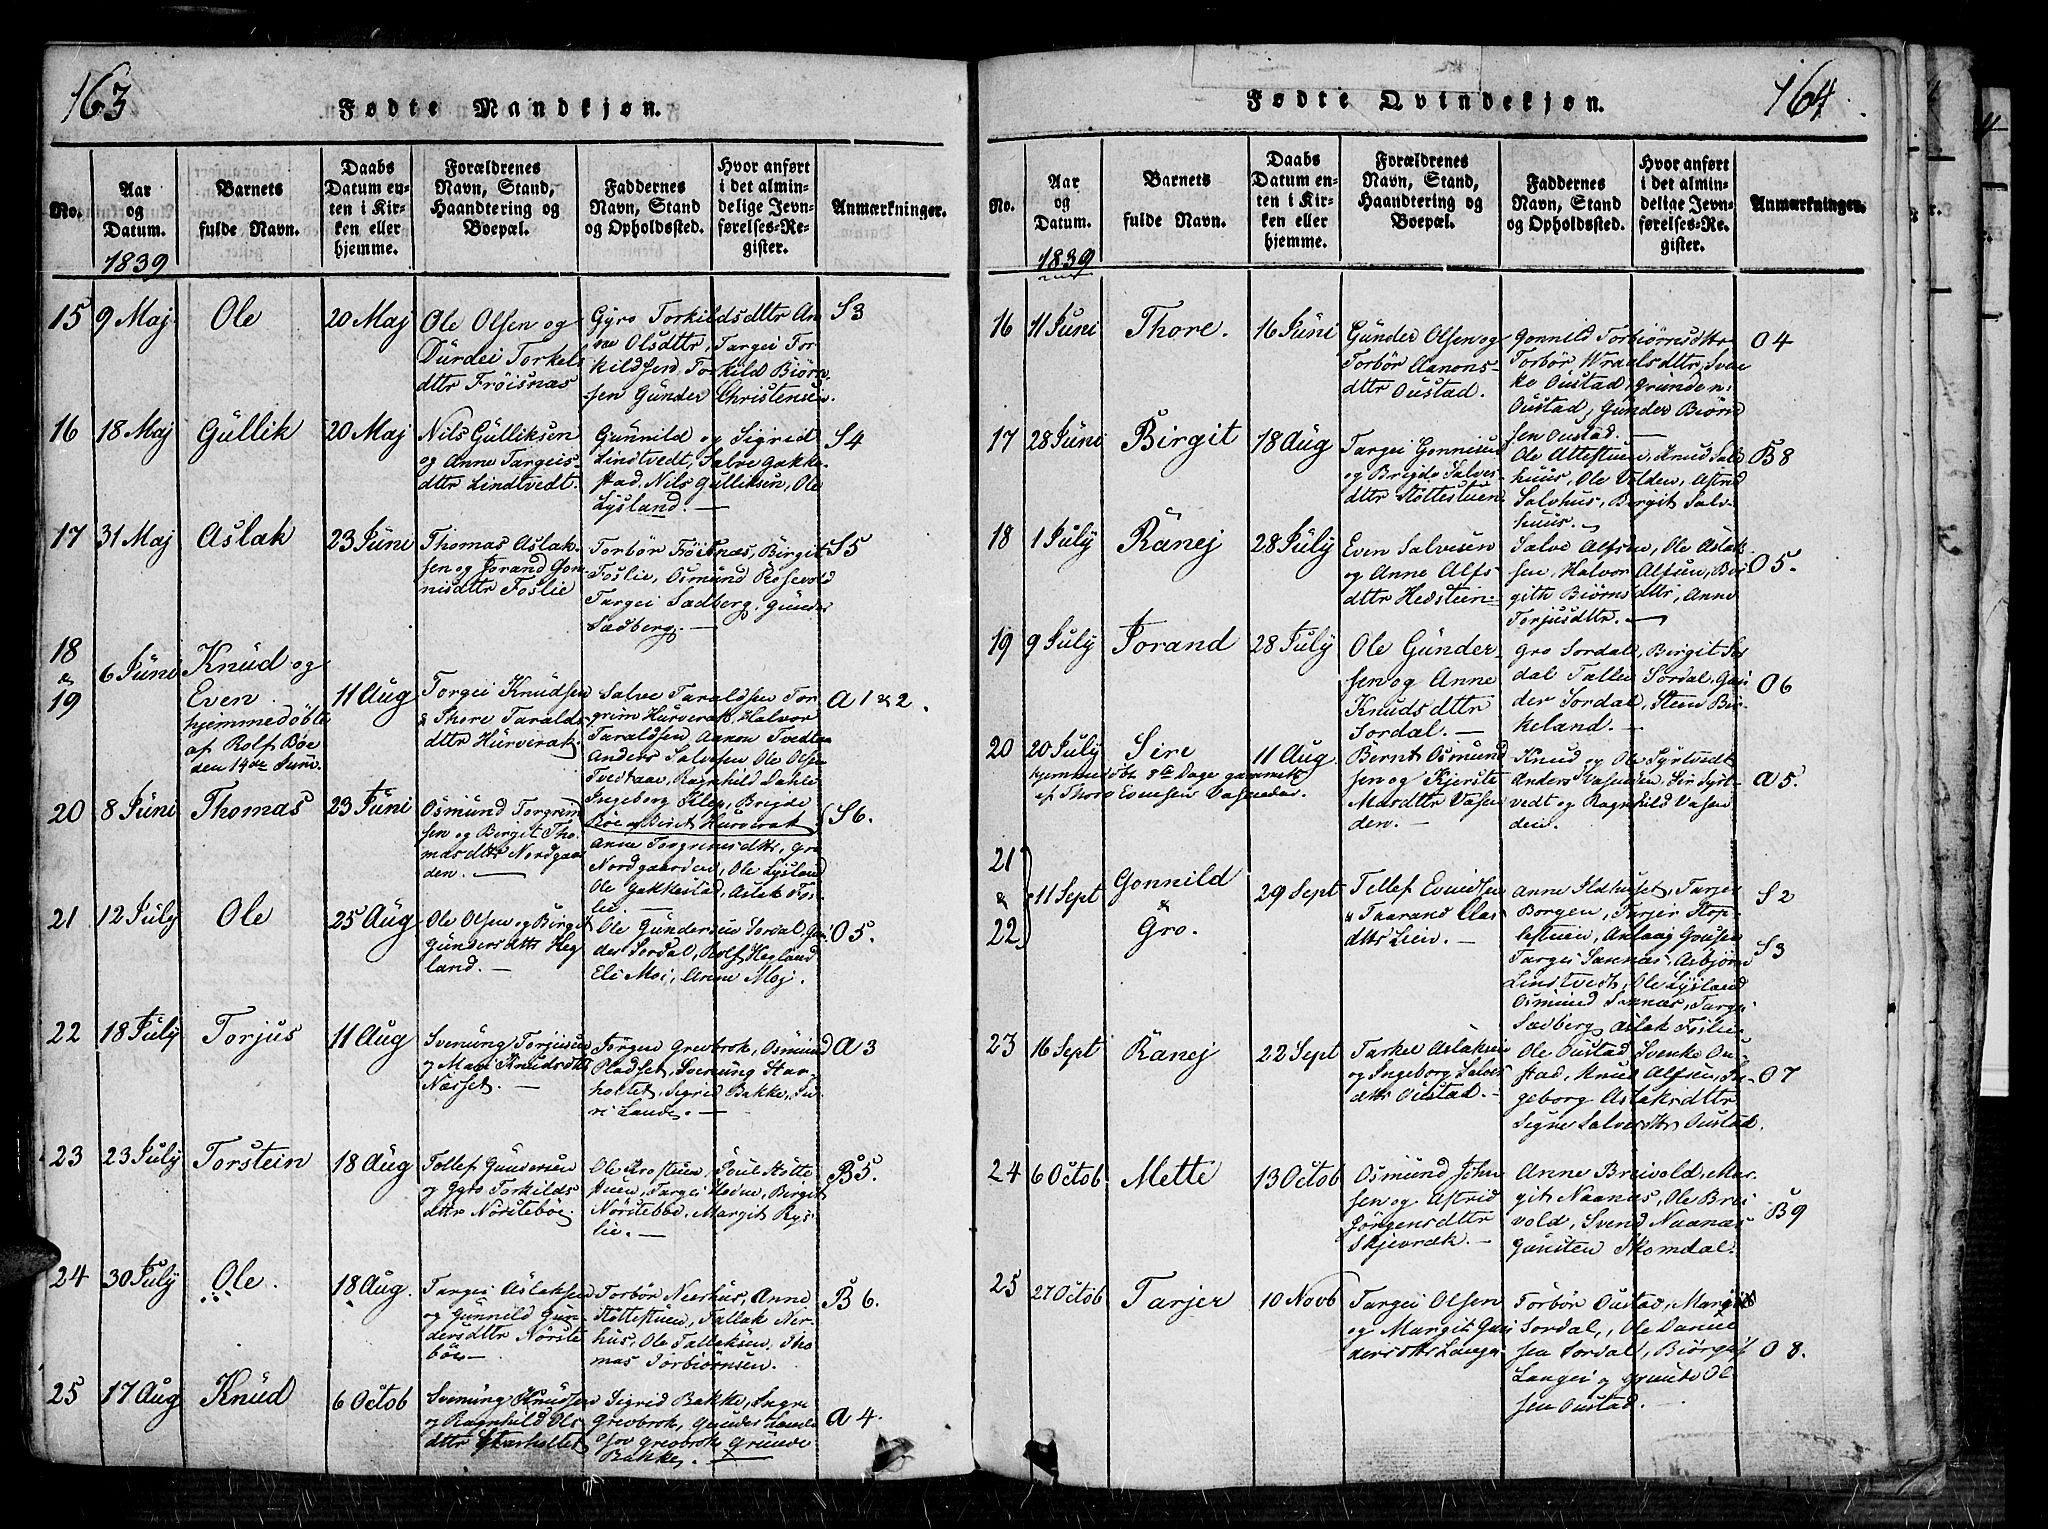 163
Fødte Mandkjøn.
No.
Aar og Datum.
Barnets fulde Navn.
Daabs Datum enten i Kirken eller hjemme.
Forældrenes Navn, Stand, Haandtering og Boepæl.
Faddernes Navn, Stand og Opholdssted.
Hvor anført i det almindelige Jevnførelses-Register.
Anmærkninger.
1839
15 9 Maj Ole 20 Maj
Ole Olsen og
Dürdei Torkels
dttr Fröisnas
Gyro Torkildsdttr An
ne Olsdttr, Targei Tor
kildsen, Torkild Biörn
sen Günder Christensen.
S3
16 18 Maj Güllik 20 Maj
Nils Gülliksen
og Anne Targeis
dttr Lindtvedt.
Gunnild og Sigrid
Lindtvedt, Salve Gakke
stad, Nils Gülliksen, Ole
Lysland. —
S4
17 31 Maj Aslak 23 Juni
Thomas Aslak
sen og Jorand Gon
nisdttr Foslie
Torbör Fröisnæs, Birgit
Foslie, Osmund Rosevold
Targei Sædberg, Günder
Sædberg. —
S5
18
&
19
6 Juni Knüd og
Even
hjemmedöbte
af Rolf Böe
den 14de Juni.
11 Aug
Torgei Knüdsen
& Thore Taralds
dttr Hürverak
Salve Taraldsen Tor
grim Hürverak, Halvor
Taraldsen Aanon Tvedten
Anders Salvesen Ole Olsen
Tvedtaas, Ragnhild Dahle
Ingeborg Klep, Brigde
Böe og Berit Hurverak
A 1 & 2.
20 8 Juni Thomas 23 Juni
Osmund Torgrim
sen og Bergit Tho
masdttr Nordgaar
den. —
Anne Torgrimsdttr, Gro
Nordgaarden, Ole Lysland
Ole Gakkestad, Aslak Fos
lie. —
S6.
21 12 July Ole 25 Aug
Ole Olsen og Birgit
Gündersdttr Heg
land. —
Ole Gundersen Sordal, Gun
der Sordal, Rolf Hegland
Eli Moi, Anne Moj.
O5.
22 18 July Torjus 11 Aug
Svenüng Torjusen
og Mari Knudsdttr
Næsset. —
Jörgen Grevbrok, Osmünd
Pladset, Svenüng Har
holtet, Sigrid Bakke, Sü
ri Lande. —
A 3
23 23 July Torstein 18 Aug
Tollef Gundersen
og Gyro Torkilds
dttr Nörsteböe.
Ole Krostuen, Poul Hötte
stuen, Targei Heden, Birgit
Nörstebbe, Margit Rys
lie. —
B5.
24 30 July Ole. 18 Aug.
Targei Aslaksen
og Günnild Gün
dersdttr Nörste
böe —
Torbör Neerhus, Anne
Höttestuen, Tallak Ner
hus, Ole Tallaksen, Tho
mas Torbiörnsen.
B 6.
25 17 Aug Knüd 6 Octob
Svenung Knüdsen
og Ragnhild Ols
dttr Harholtet
Sigrid Bakke, Ingre
Grevbrok, Gunder Lande
Grevbrok Gründe
Bakke. —
A 4.
164
Fødte Qvindekjøn.
No.
Aar og Datum.
Barnets fulde Navn.
Daabs Datum enten i Kirken eller hjemme.
Forældrenes Navn, Stand, Haandtering og Boepæl.
Faddernes Navn, Stand og Opholdssted.
Hvor anført i det almindelige Jevnførelses-Register.
Anmærkninger.
1839
16 11 Juni Thore. 16 Juni
Günder Olsen og
Torbör Aanons
dttr Oustad.
Gonnild Torbiörnsdttr
Torbör Wraalsdttr, Sven
ke Oustad, Gründen
Oustad, Günder Biörn
sen Oustad. —
O4
17 28 Juni Birgit 18 Aug
Targei Gonnisen
og Brigde Salves
dttr Höttestuen
Ole Attestuen, Knud Salv
huus, Ole Velden, Astrid
Salvhus, Birgit Salv
huus. —
B8
18 1 July Ranej 28 July
Even Salvesen
og Anne Alfs
dttr Hedstein
Salve Alfsen, Ole Aslak
sen, Halvor Alfsen, Bir
gith Biörnsdttr, Anne
Torjusdttr. —
O5.
19 9 July Jorand 28 July
Ole Günder
sen og Anne
Knüdsdttr
Sordal. —
Gro Sordal, Birgit Sor
dal Tallev Sordal, Gun
der Sordal, Steen Bir
keland. —
O6
20 20 July Sire 11 Aug
hjemmedöbt 8te Dage gammelt
af Thore Evensen Vasenden.
Bernt Osmund
sen og Kjerste
Marsdttr Vasen
den. —
Knud og Ole Syrtvedt
Anders Vasenden, Siri Syrt
vedt og Ragnhild Vasen
den.
A5.
21
&
22
11 Sept Gonnild
&
Gro.
29 Sept
Tellef Evindsen
& Tharand Olas
dttr Lien. —
Anne Ildhuset, Tarjer
Borgen, Tarjer Stop
lestuen, Anlaug
Targei Sannæs, Asbjörn
Lindtvedt, Ole Lysland
Osmund Sannæs, Targei
Sædberg Aslak Foslie.
S2
S3
23 16 Sept Ranej 22 Sept
Tarkel Aslaksen
og Ingeborg Salves
dttr Oustad. —
Ole Oustad Svenke Ou
stad, Knud Alfsen, In
geborg Aslaksdttr
Signe Salvesdttr Oustad.
O7
24 6 Octob Mette 13 Octob
Osmünd John
sen og Astrid
Jörgensdttr
Skjevrak. —
Anne Breivold, Mar
git Naanas, Ole Brei
vold, Svend Naanas
Günsten Skomdal.
B9
25 27 Octob Tarjer 10 Novb
Targei Olsen
og Margit Gun
dersdttr Langei
Torbör Oustad, Margit
Sordal, Ole Daniel
sen Sordal, Biörgu
Langei og Grunde Ol
sen Oustad. —
O8.